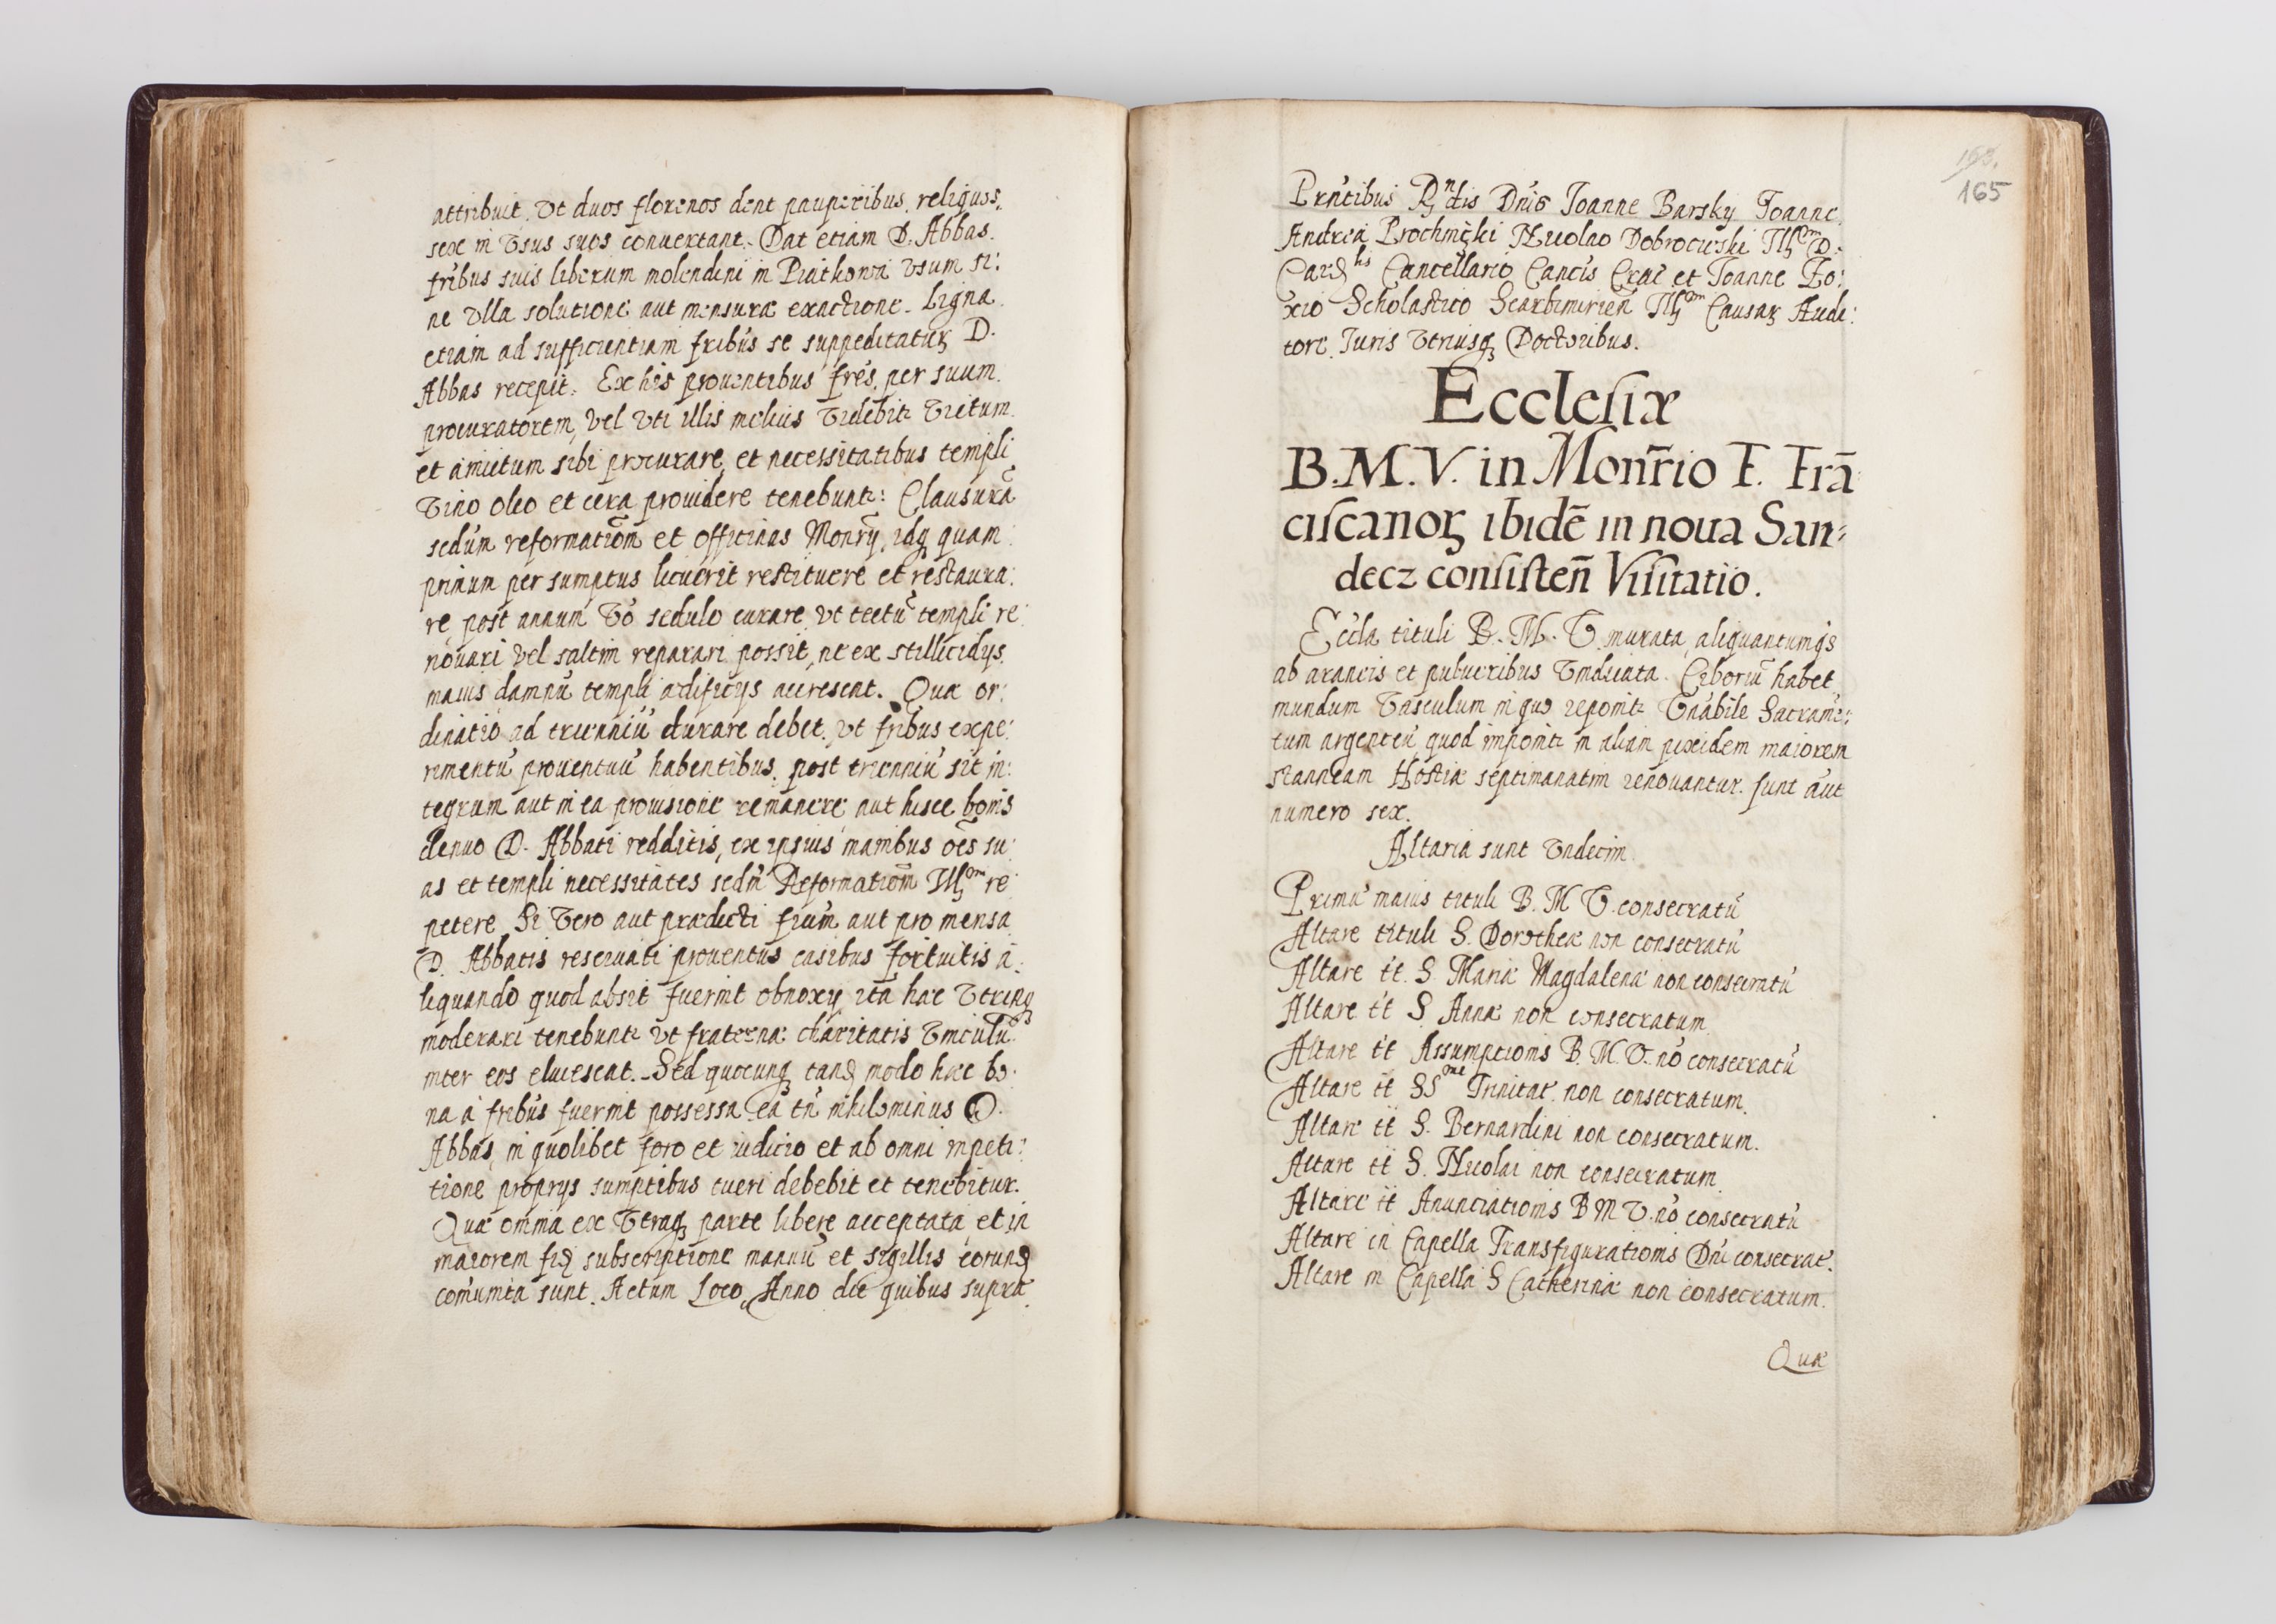 attribuit. Vt duos florenos dent pauperibus. reliquss.
sex in Vsus suos conuertant. Dat etiam D. Abbas.
fribus suis liberum molendini in Piatkowa vsum si:
ne vlla solutione aut mensuræ exactione. Ligna
etiam ad sufficientiam fribus se suppeditaturꝫ D.
Abbas recepit. Ex his prouentibus fres. per suum
procuratorem, Vel vti illis melius Videbitr Victum
et amictum sibi procurare, et necessitatibus templi
Vino oleo et cera prouidere tenebuntr: Clausurā
sedum reformatiom et officinas Monrÿ, idqꝫ quam
primum per sumptus licuerit restituere et restaura:
re post annum Vo sedulo curare. vt tectū templi re:
nouari vel saltim reparari possit, ne ex stillicidÿs
maius damnū templi ædificÿs accrescat. Quæ or:
dinatio ad trienniū durare debet. vt fribus expe:
rimentū prouentuū habentibus. post trienniū sit in:
tegrum aut in ea prouisione remanere aut hisce bonis
denuo D. Abbati redditis, ex ipsius manibus oēs su:
as et templi necessitates sedm Reformatiom Illꝫom re:
petere. Si Vero aut prædicti frum aut pro mensa
D. Abbatis reseruati prouentus casibus fortuitis a:
liquando quod absit fuerint obnoxÿ ita hæc Vtrinqꝫ
moderari tenebuntr vt fraternæ charitatis Vinculū
inter eos elucescat. Sed quocunqꝫ tandꝫ modo hæc bo:
na à fribus fuerint possessa ea tn nihilominus D.
Abbas, in quolibet foro et iudicio et ab omni impeti:
tione proprÿs sumptibus tueri debebit et tenebitur.
Quæ omnia ex Vtraqꝫ parte libere acceptata, et in
maiorem fidꝫ subscriptione manuū et sigillis eorundꝫ
comunita sunt. Actum Loco, Anno die quibus supra.
163.
165
Prntibus Rꝫndis Dnis Joanne Barsky Joanne
Andrea Prochnicki Nicolao Dobrocieski Illꝫom D.
Cardꝫlis Cancellario Cancis Crac et Joanne Fo:
xio Scholastico Scarbimirien Illꝫom Causarꝫ Audi:
tore. Juris Vtriusqꝫ Doctoribus.
Ecclesiæ
B.M.V. in Monr̄io F. Frā
ciscanorꝫ ibidē in noua San:
decz consisten̄ Visitatio.
Eccla tituli B. M. V. murata, aliquantumqs
ab araneis et pulueribus Vindicata. Ciboriū habet
mundum Vasculum in quo reponitr Vnabile Sacramē:
tum argenteū quod imponitr in aliam pixidem maiorem
stanneam Hostiæ septimanatim renouantur. sunt aut
numero sex.
Altaria sunt Vndecim
Primū maius tituli B. M V. consecratū
Altare tituli S. Dorotheæ non consecratū
Altare tt. S Mariæ Magdalenæ non consecratū
Altare tt S Annæ non consecratum
Altare tt Assumptionis B. M. V. nō consecratū
Altare tt SSmæ Trinitat. non consecratum.
Altare tt S. Bernardini non consecratum.
Altare tt S. Nicolai non consecratum.
Altare tt Anunciationis B M V. nō consecratū
Altare in Capella Transfigurationis Dni consecrat.
Altare in Capella S Catherinæ non consecratum.
Quæ